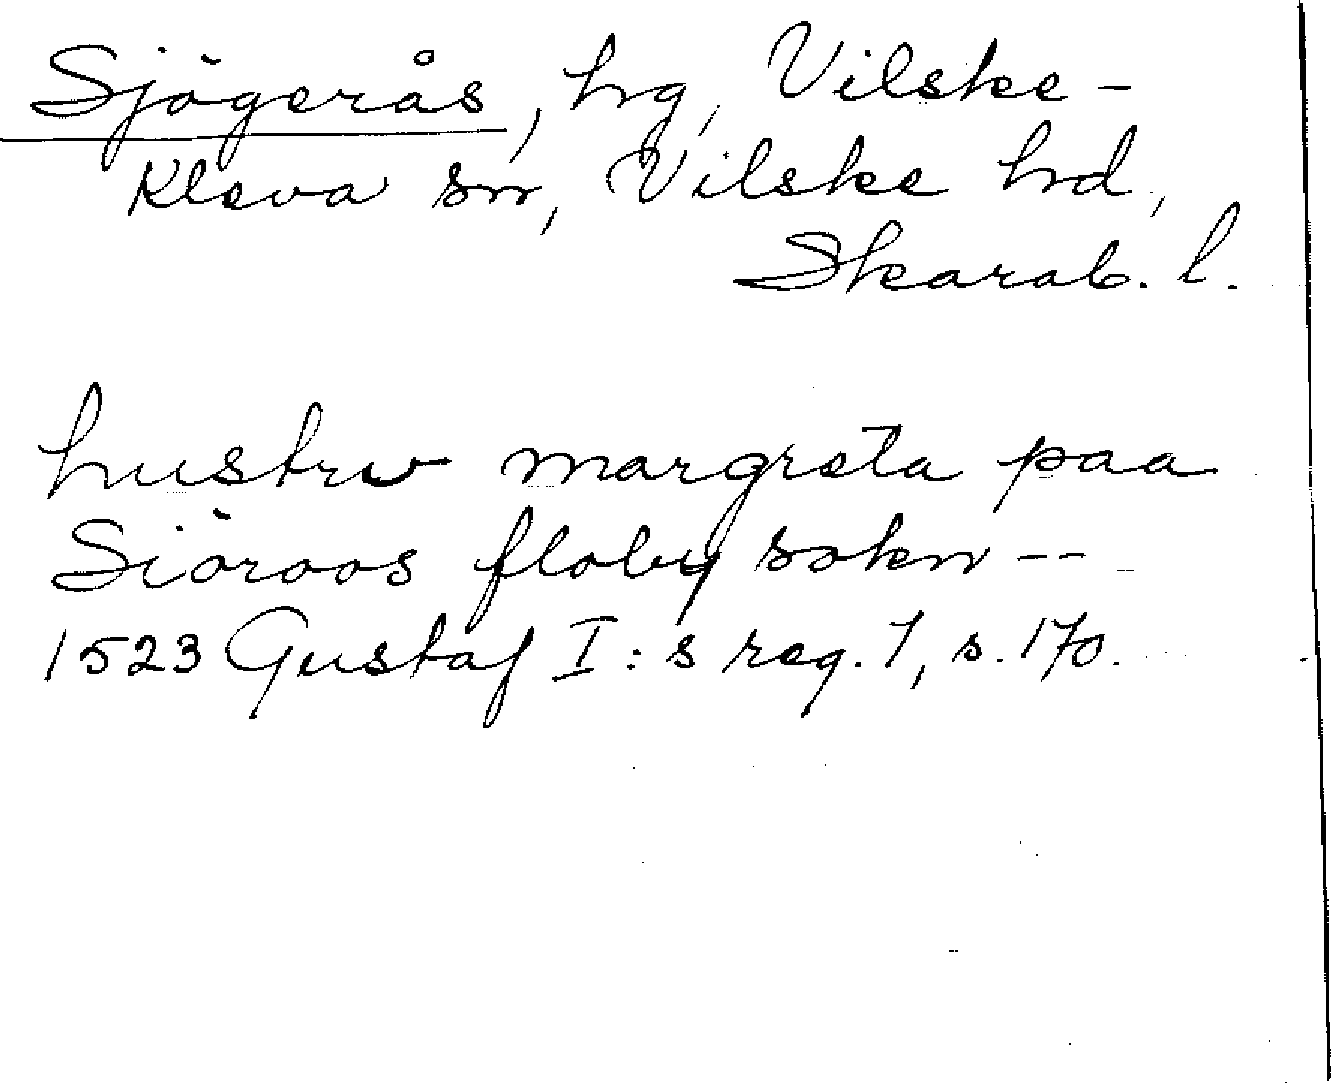 Sjögerås, hg, Vilske-
Kleva sn, Vilske hd,
Skarab. l.
hustrv margreta paa
Siöroos floby sokn --
1523 Gustaf I:s reg. 1, s. 170.